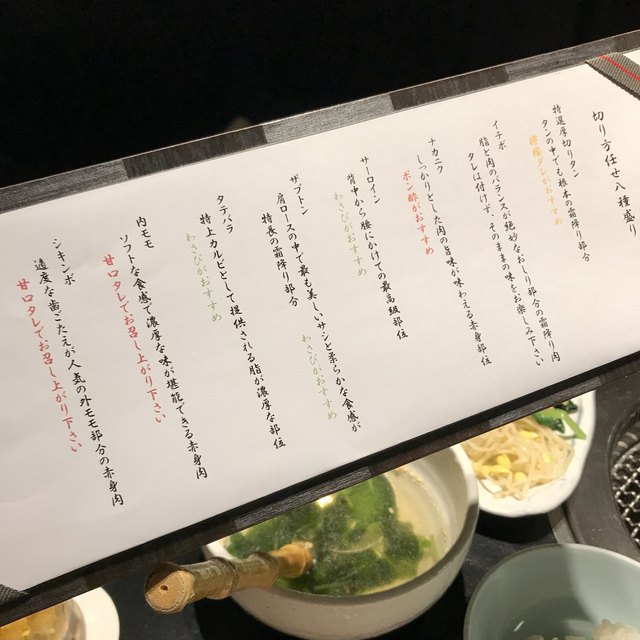 切り方任せ八種盛り
特選厚切りタン
タンの中でも根本の霜降り部分
イチボ
脂と肉のバランスが絶妙なおしり部分の霜降り肉
タレは付けず、そのままの味をお楽しみ下さい
ナカニク
しっかりとした肉の旨味が味わえる赤身部位
ポン酢がおすすめ
サーロイン
背中から腰にかけての最高級部位
わさびがおすすめ
ザブトン
肩ロースの中で最も美しいサシと柔らかな食感が
特長の霜降り部分
わさびがおすすめ
タテバラ
特上カルビとして提供される脂が濃厚な部位
わさびがおすすめ
内モモ
ソフトな食感で濃厚な味が堪能できる赤身肉
甘口タレでお召し上がり下さい
シキンボ
適度な歯ごたえが人気の外モモ部分の赤身肉
甘口タレでお召し上がり下さい